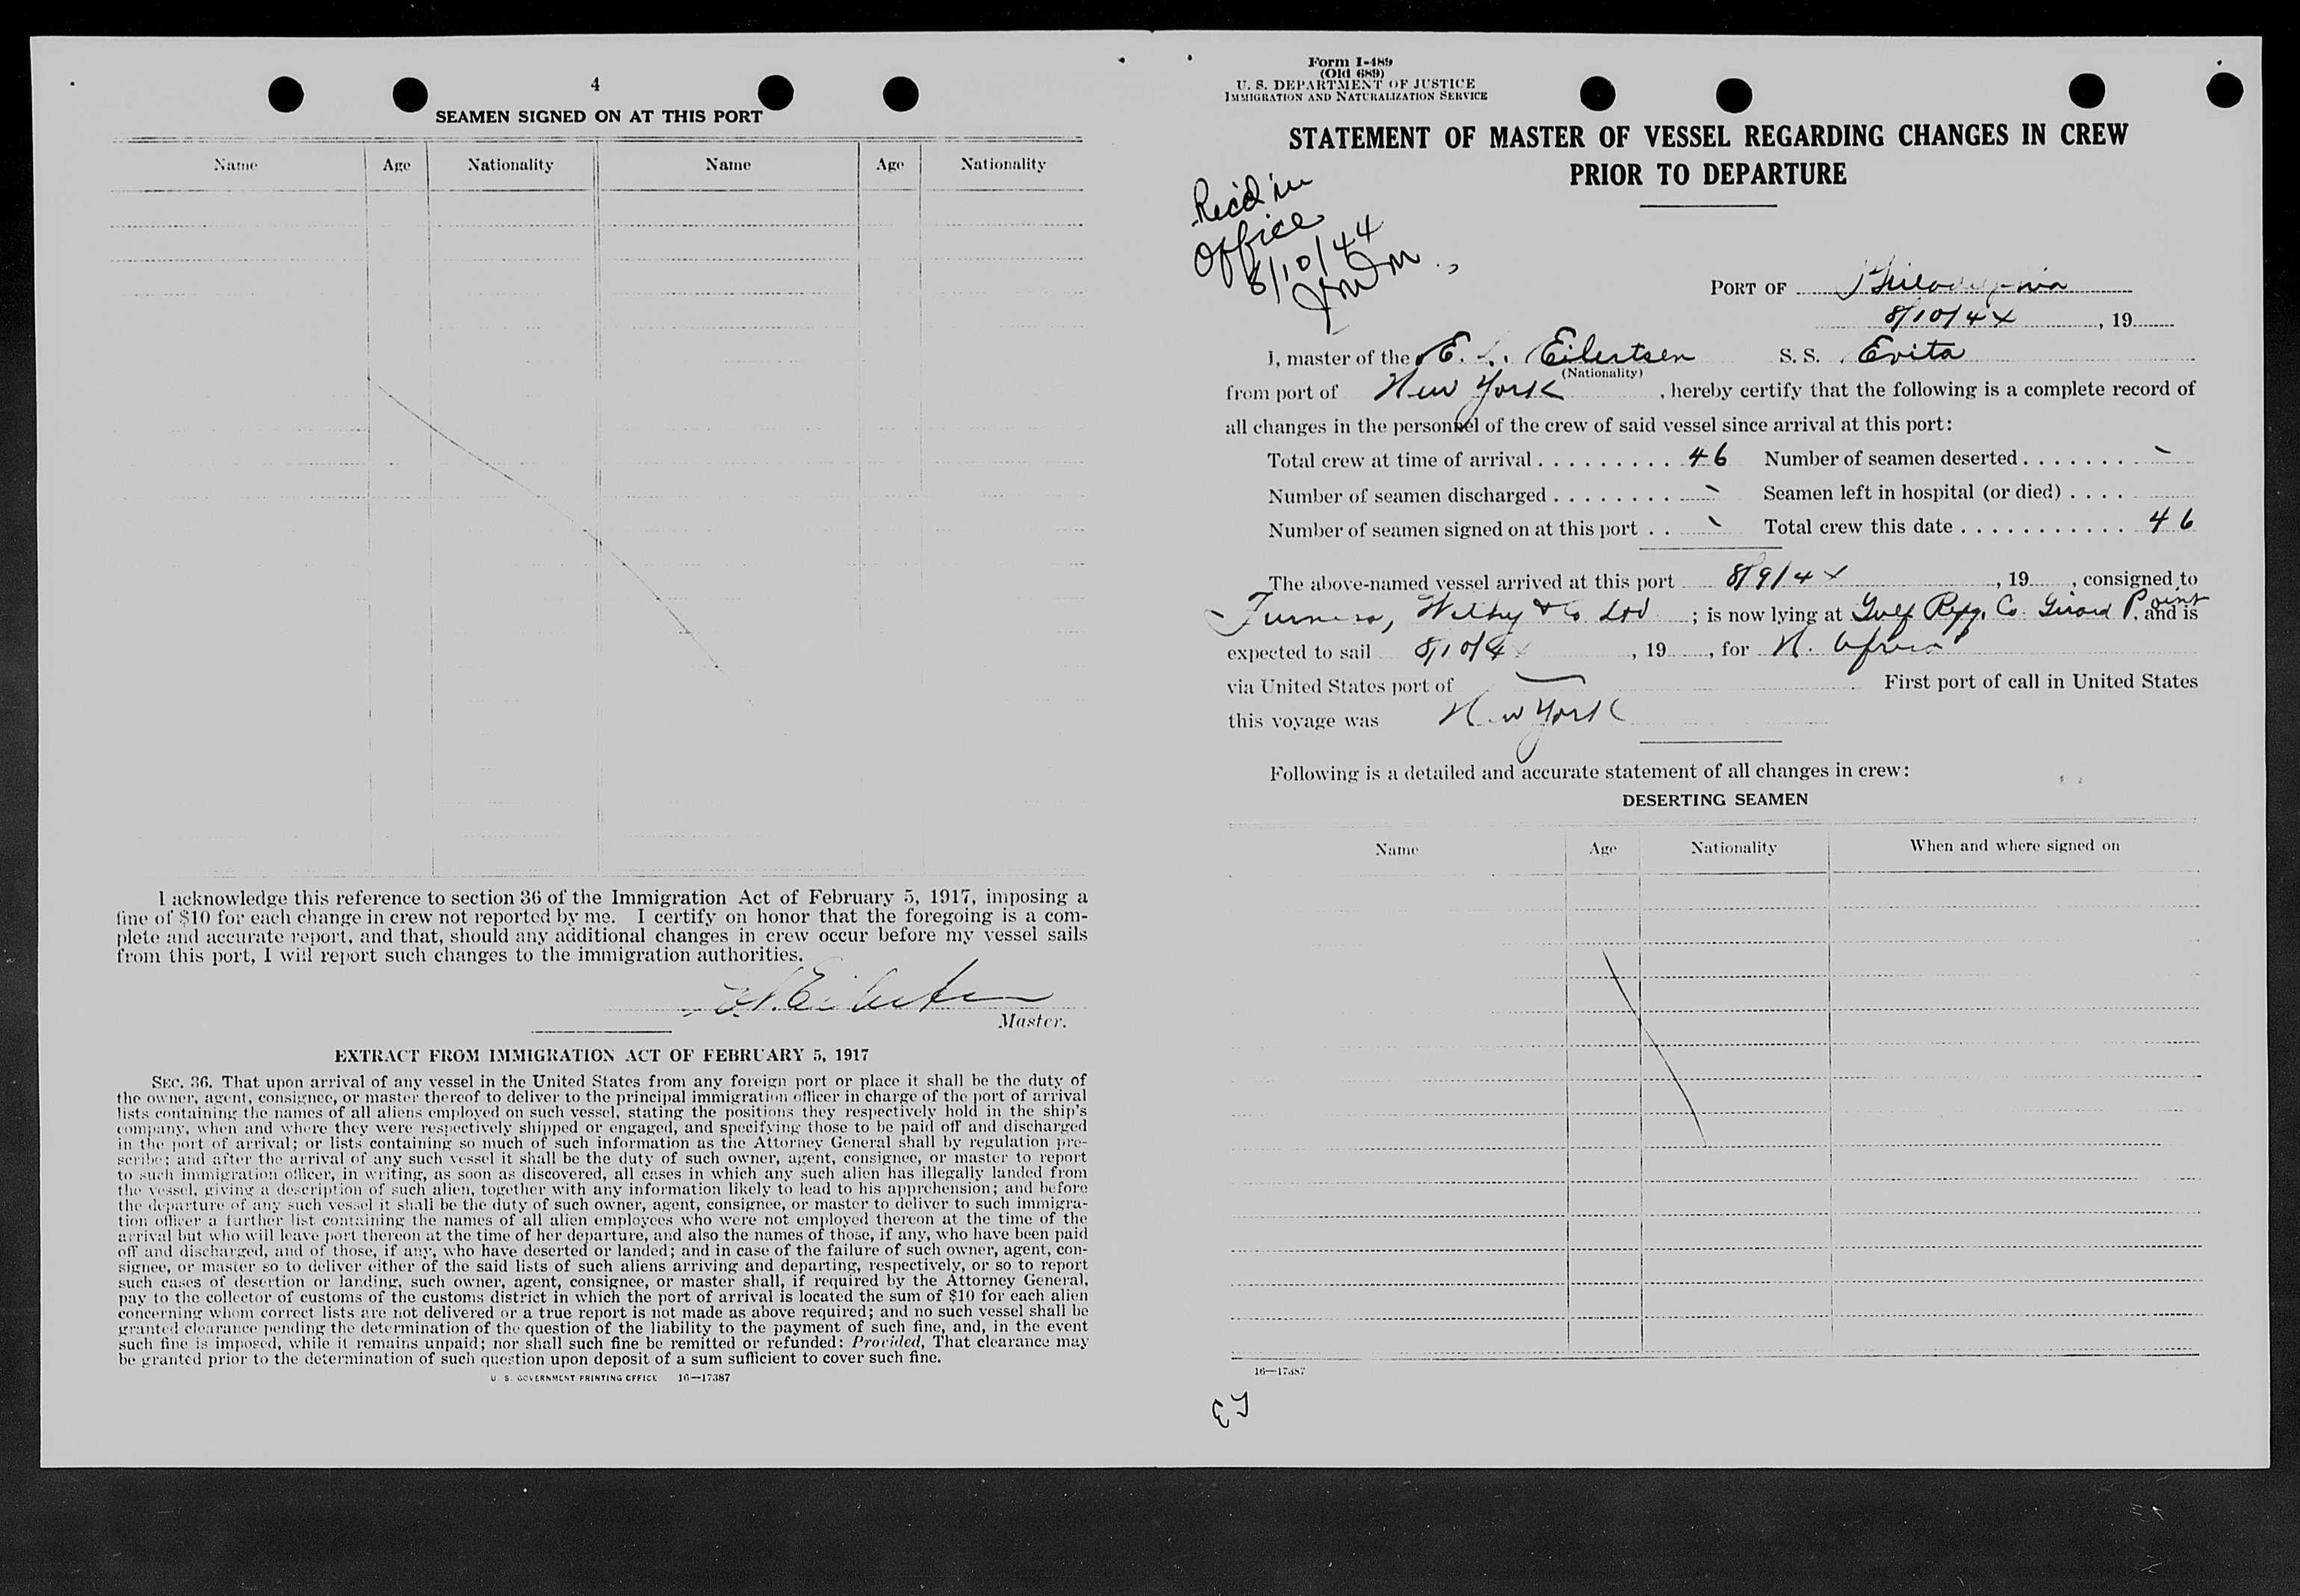 4
SEAMEN SIGNED ON AT THIS PORT
Name Age Nationality Name Age Nationality
I acknowledge this reference to section 36 of the Immigration Act of February 5, 1917, imposing a
fine of $10 for each change in crew not reported by me. I certify on honor that the foregoing is a com-
plete and accurate report, and that, should any additional changes in crew occur before my vessel sails
from this port, I will report such changes to the immigration authorities.
Eilertsen
Master.
EXTRACT FROM IMMIGRATION ACT OF FEBRUARY 5, 1917
SEC. 36. That upon arrival of any vessel in the United States from any foreign port or place it shall be the duty of
the owner, agent, consignee, or master thereof to deliver to the principal immigration officer in charge of the port of arrival
lists containing the names of all aliens employed on such vessel, stating the positions they respectively hold in the ship's
company, when and where they were respectively shipped or engaged, and specifying those to be paid off and discharged
in the port of arrival; or lists containing so much of such information as the Attorney General shall by regulation pre-
scribe; and after the arrival of any such vessel it shall be the duty of such owner, agent, consignee, or master to report
to such immigration officer, in writing, as soon as discovered, all cases in which any such alien has illegally landed from
the vessel, giving a description of such alien, together with any information likely to lead to his apprehension; and before
the departure of any such vessel it shall be the duty of such owner, agent, consignee, or master to deliver to such immigra-
tion officer a further list containing the names of all alien employees who were not employed thereon at the time of the
arrival but who will leave port thereon at the time of her departure, and also the names of those, if any, who have been paid
off and discharged, and of those, if any, who have deserted or landed; and in case of the failure of such owner, agent, con-
signee, or master so to deliver either of the said lists of such aliens arriving and departing, respectively, or so to report
such cases of desertion or landing, such owner, agent, consignee, or master shall, if required by the Attorney General,
pay to the collector of customs of the customs district in which the port of arrival is located the sum of $10 for each alien
concerning whom correct lists are not delivered or a true report is not made as above required; and no such vessel shall be
granted clearance pending the determination of the question of the liability to the payment of such fine, and, in the event
such fine is imposed, while it remains unpaid; nor shall such fine be remitted or refunded: Provided, That clearance may
be granted prior to the determination of such question upon deposit of a sum sufficient to cover such fine.
U. S. GOVERNMENT PRINTING OFFICE 16—17387
Form I-489
(Old 689)
U. S. DEPARTMENT OF JUSTICE
IMMIGRATION AND NATURALIZATION SERVICE
STATEMENT OF MASTER OF VESSEL REGARDING CHANGES IN CREW
PRIOR TO DEPARTURE
Rec'd in
Office
8/10/44
PORT OF Philadelphia
8/10/44, 19
I, master of the E. Eilertsen S. S. Evita
(Nationality)
from port of New York, hereby certify that the following is a complete record of
all changes in the personnel of the crew of said vessel since arrival at this port:
Total crew at time of arrival . . . . . . . . . . 46 Number of seamen deserted . . . . . . . -
Number of seamen discharged . . . . . . . . - Seamen left in hospital (or died) . . . .
Number of seamen signed on at this port . . - Total crew this date . . . . . . . . . . . . 46
The above-named vessel arrived at this port 8/9/44, 19, consigned to
Furness, Withy & Co Ltd; is now lying at Gulf Refg. Co. Girard Point and is
expected to sail 8/10/44, 19, for N. Africa
via United States port of — First port of call in United States
this voyage was New York
Following is a detailed and accurate statement of all changes in crew:
DESERTING SEAMEN
Name Age Nationality When and where signed on
16—17387